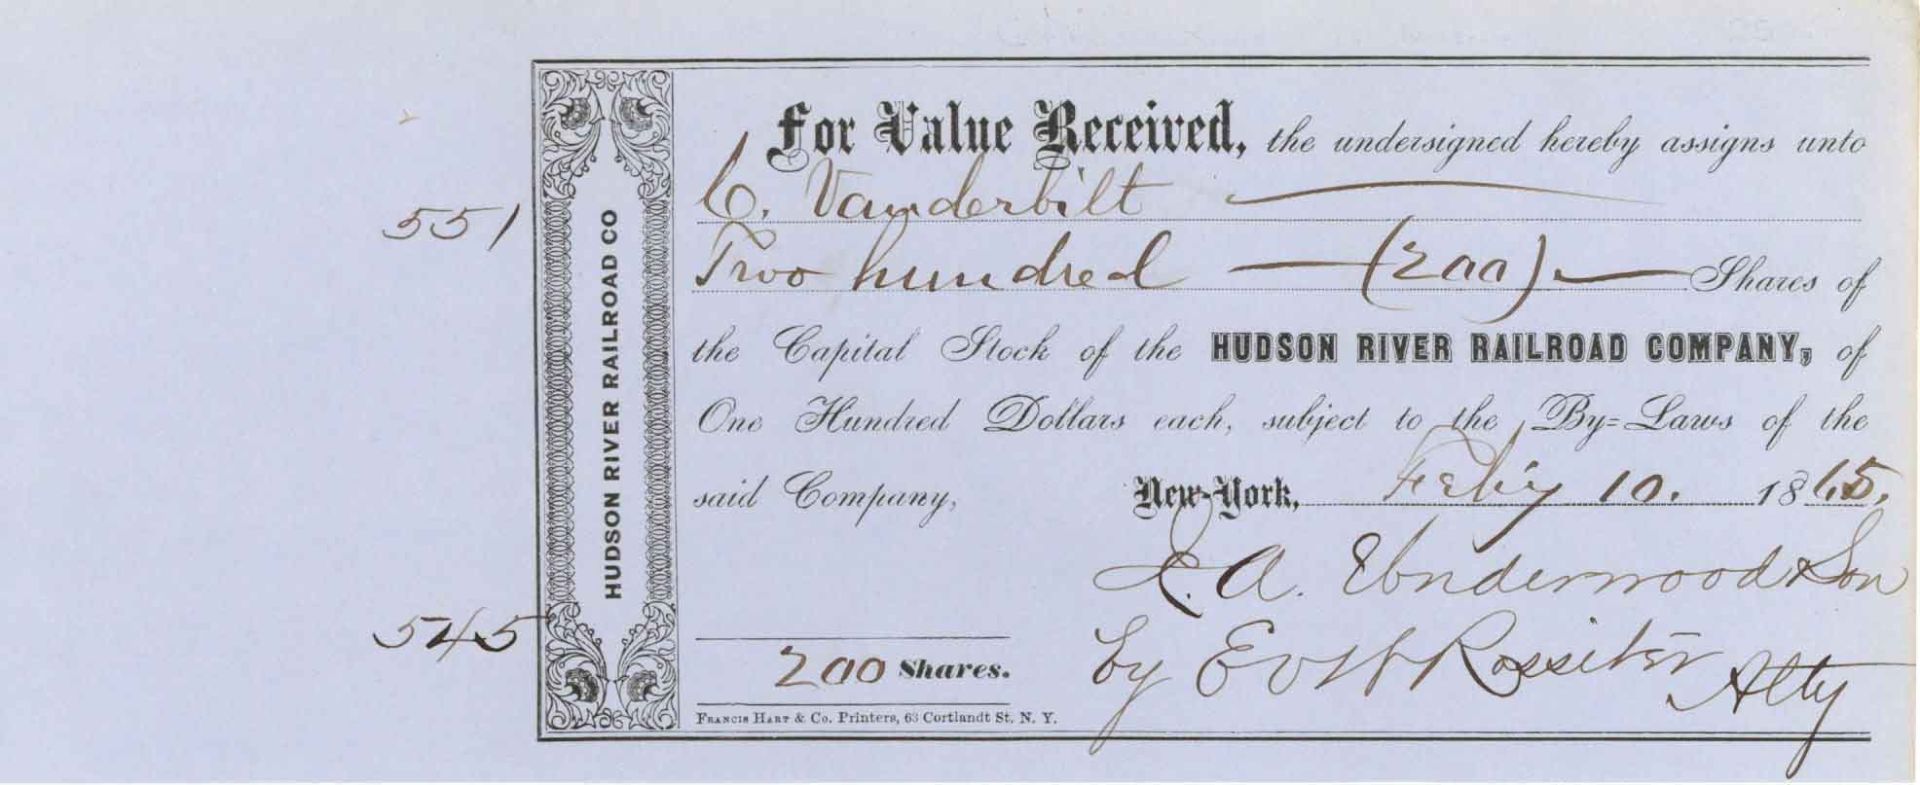 For Value Received, the undersigned hereby assigns unto
C. Vanderbilt
Two hundred — (200) — Shares of
the Capital Stock of the HUDSON RIVER RAILROAD COMPANY, of
One Hundred Dollars each, subject to the By=Laws of the
said Company, New-York, Feby 10. 1865.
A. Underwood & Son
by Rossiter Atty
200 Shares.
FRANCIS HART & Co. Printers, 63 Cortlandt St. N. Y.
HUDSON RIVER RAILROAD CO
551
545